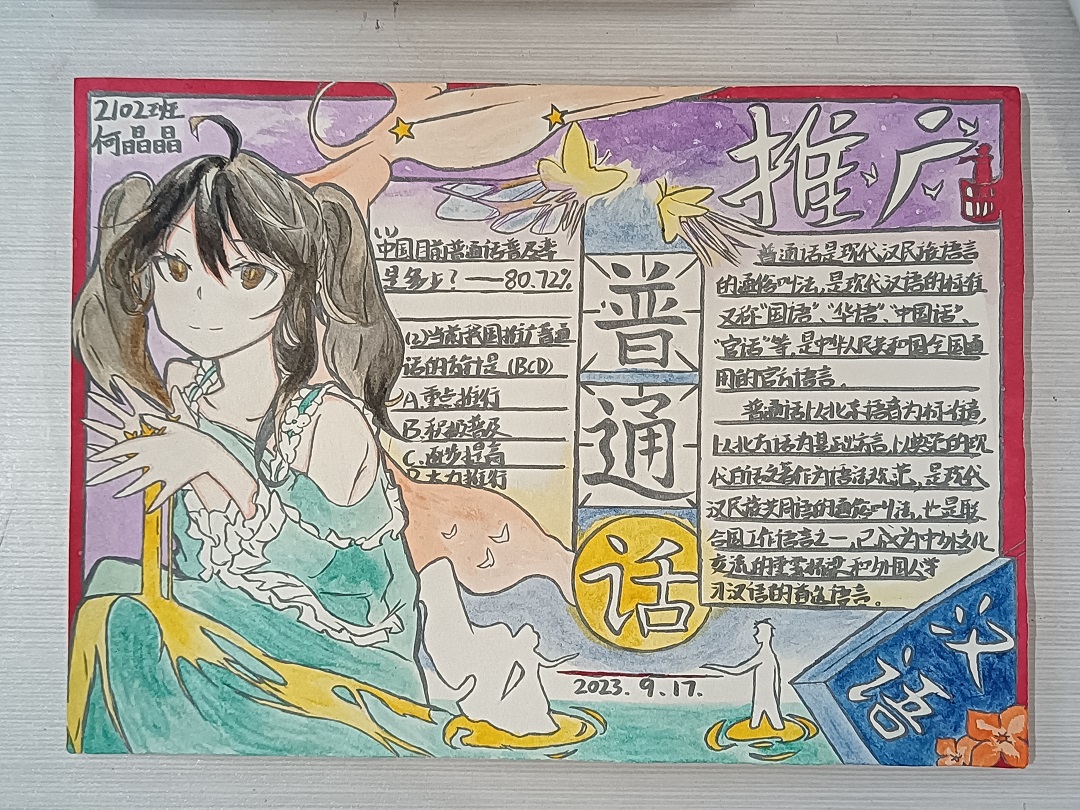 2102班
何晶晶
推广
普通话
(1)
中国目前普通话普及率
是多少？——80.72%
(2)当前我国推广普通
话的方针是(BCD)
A.重点推行
B.积极普及
C.逐步提高
D.大力推行
普通话是现代汉民族语言
的通俗叫法,是现代汉语的标准
又称“国语”、“华语”、“中国话”、
“官话”等,是中华人民共和国全国通
用的官方语言。
普通话以北京语音为标准音,
以北方话为基础方言,以典范的现
代白话文著作为语法规范,是现代
汉民族共同语的通俗叫法,也是联
合国工作语言之一,已成为中外文化
交流的重要桥梁和外国人学
习汉语的首选语言。
2023.9.17.
华
语